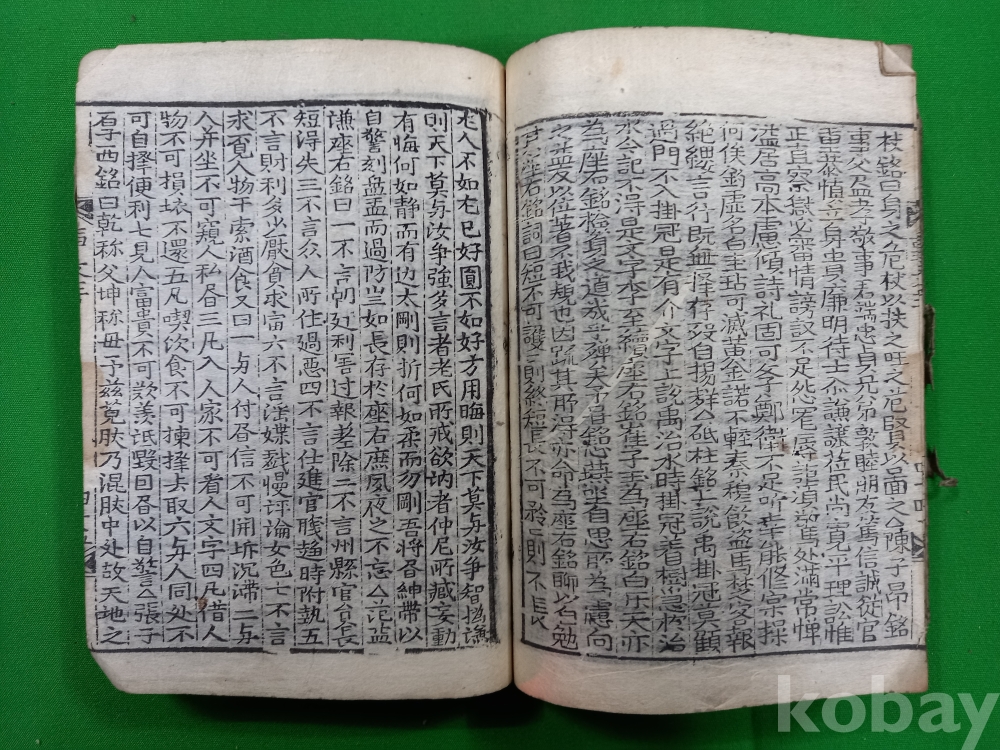 杖銘曰身之危杖以扶之吁之危賢以畾之△陳子昂銘
事父盡孝敬事君端忠貞兄弟敦睦朋友篤信誠從官
重恭慎立身貴廉明待士慕謙讓莅民尚寬平理訟惟
正直察獄必審情謗議不足怨寵辱詎須驚處滿常憚
溢居高本慮傾詩礼固可学鄭衛不足听幸能修宗操
何俟釣虛名白圭玷可滅黃金諾不輕秦穆飮盜馬楚客報
絶纓言行既無擇存歿自揚群△砥柱銘上說禹掛冠莫顧
過門不入掛冠是有介文字上說禹治水時掛冠着樹急於治
水今記不得是文字本至續座右銘崔子玉為座右銘白乐天亦
為座右銘檢身之道咸乎殫矣予負銘燕坐自思所為慮向
之友以位著不我規也因疏其所得亦命為座右銘聊以自勉
座右銘詞曰短不可護二則終短長不可矜二則不長
尤人不如尤己好圓不如好方用晦則天下莫与汝争智撝謙
則天下莫与汝争強多言者老氏所戒欲訥者仲尼所臧妄動
有悔何如静而有边太剛則折何如柔而勿剛吾將昏紳帶以
自警刻盤盂而過防豈如長存於座右庶夙夜之不忘△范益
謙座右銘曰一不言朝廷利害过報差除二不言州縣官員長
短得失三不言众人所住過悪四不言仕進官職趋時附執五
不言財利多少厭貧求富六不言淫媟戱慢評論女色七不言
求覓人物干索酒食又曰一与人付昏信不可開坼沉滞二与
人并坐不可窺人私昏三凡入人家不可看人文字四凡借人
物不可損壞不還五凡喫飲食不可揀擇去取六与人同处不
可自擇便利七見人富貴不可歎羨诋毁回昏以自警△張子
西銘曰乾称父坤称毋予兹藐肰乃混肰中处故天地之
kobay